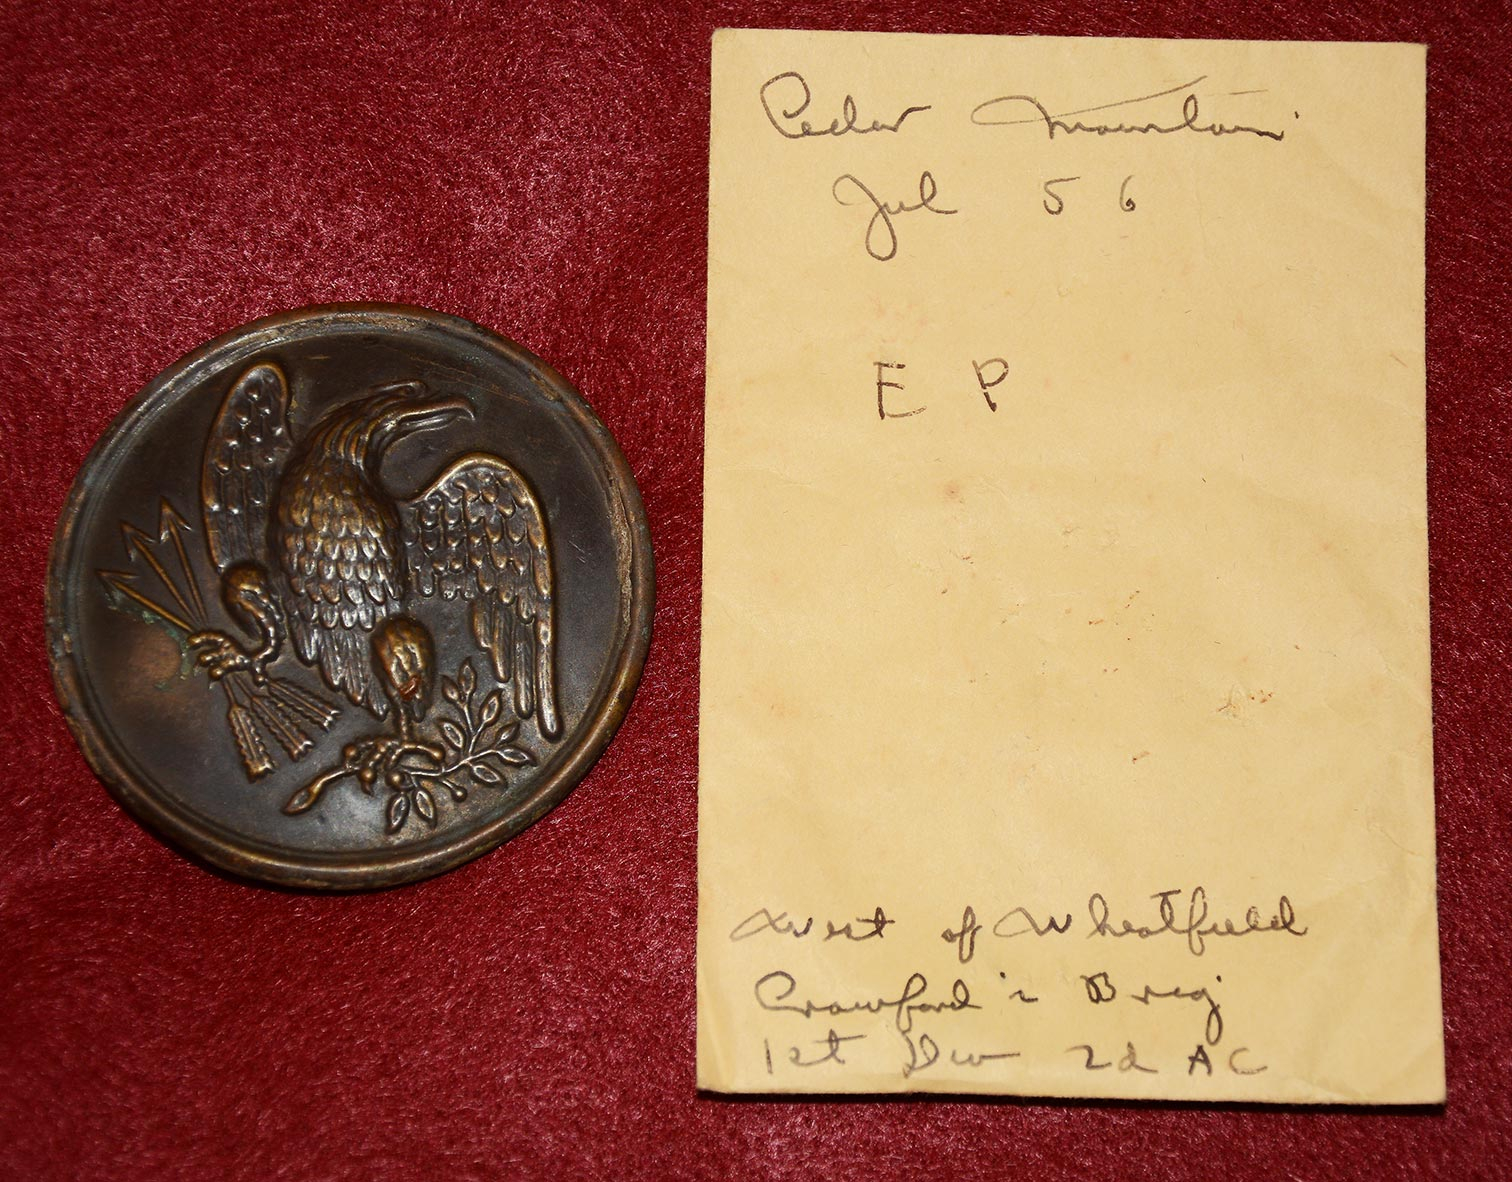 Cedar Mountain
Jul 56
E P
West of Wheatfield
Crawford's Brig
1st Div 2d AC